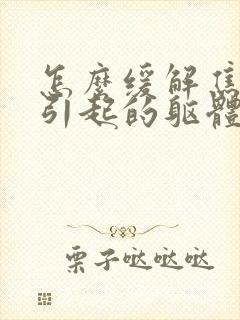 怎麼缓解焦
引起的躯體
栗子哒哒哒